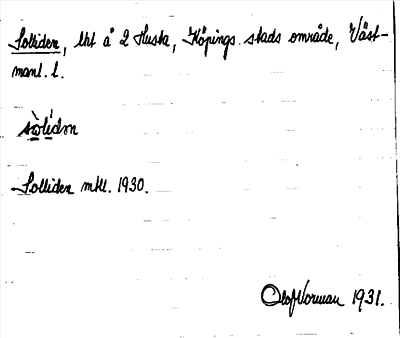 Solliden, lht å 2 Huska, Köpings stads område, Väst-
manl. l.
sòlídn
Solliden mtl. 1930.
Olof Norman 1931.